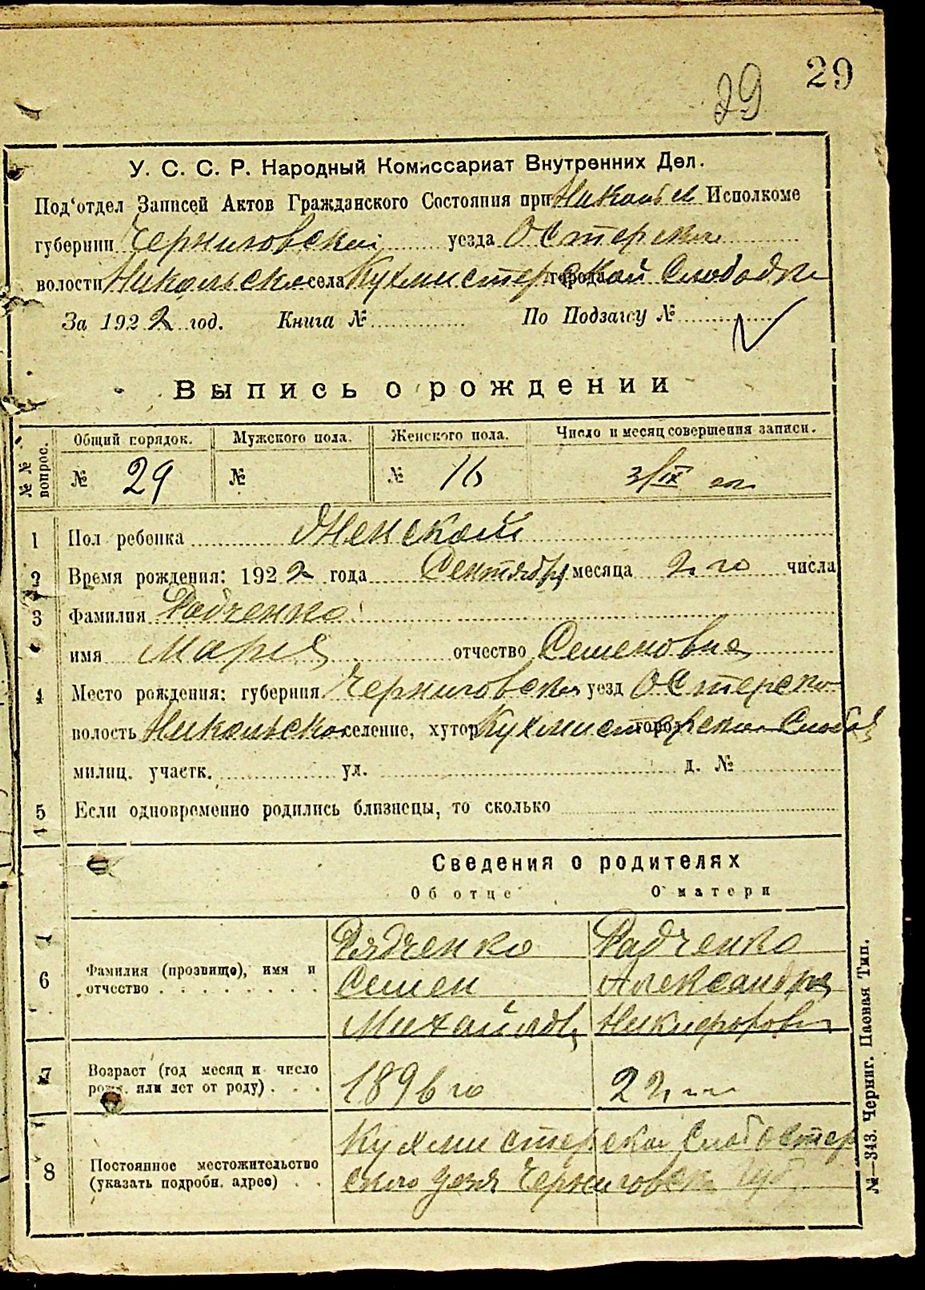 29
29
У. С. С. Р. Народный Комиссариат Внутренних Дел.
Под'отдел Записей Актов Гражданского Состояния при Никольск Исполкоме
губернии Черниговской уезда Остерском
волости Никольской села Кухмистерской города Слободки
За 1922 год. Книга № По Подзагсу №
Выпись о рождении
№ № вопрос. Общий порядок. Мужского пола. Женского пола. Число и месяц совершения записи.
№ 29 № № 16
1 Пол ребенка Женской
2 Время рождения: 1922 года Сентября месяца 2го числа
3 Фамилия Радченко
имя Мария отчество Семеновна
4 Место рождения: губерния Черниговская уезд Остерско
волость Никольско селение, хутор Кухмистерская город Слобод
милиц. участк. ул. д. №
5 Если одновременно родились близнецы, то сколько
Сведения о родителях
Об отце О матери
Рядченко Радченко
6 Фамилия (прозвище), имя и отчество Семен Александра
Михайлов Никифоровн
7 Возраст (год месяц и число рожд. или лет от роду) 1896 го 22
8 Постоянное местожительство (указать подробн. адрес) Кухмистерская Слоб Остер
ского уезда Черниговск губ.
№—343. Черниг. Паевая Тип.